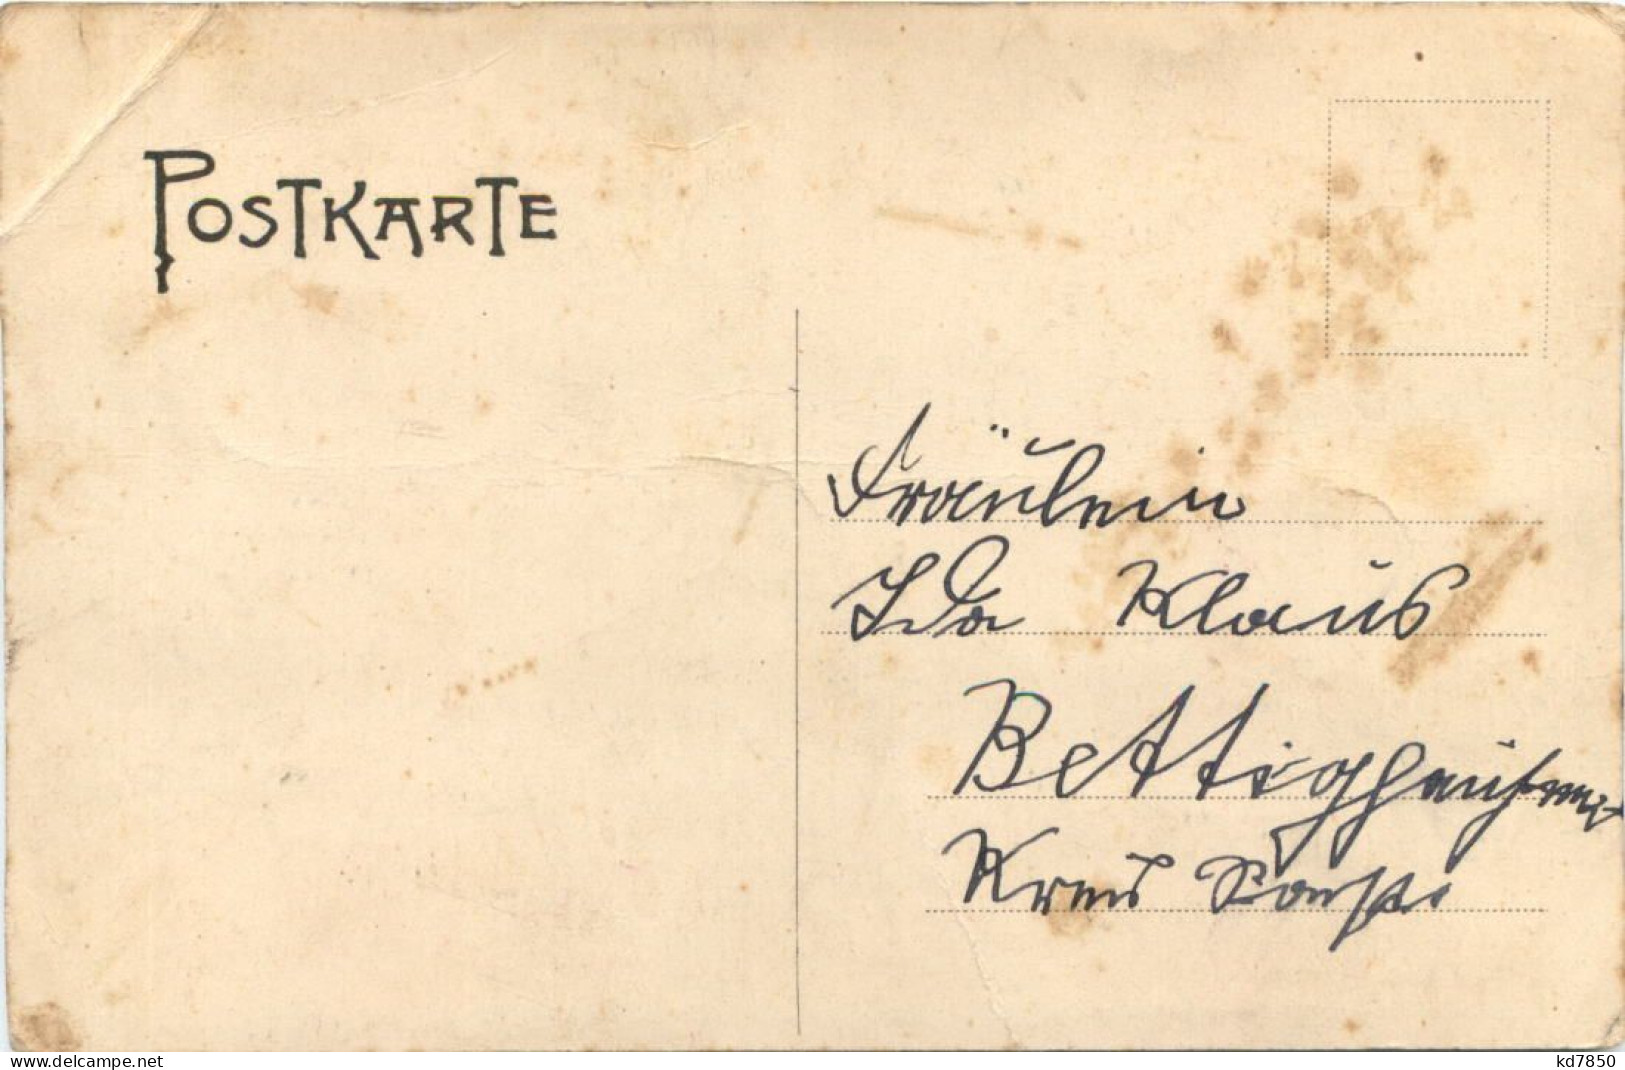 POSTKARTE
Fräulein
Ida Klaus
Bettinghausen
Kreis Soest
delcampe.net
kd7850